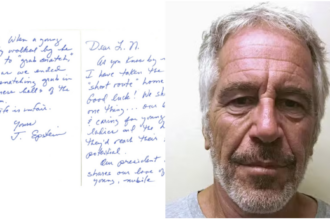 When a young
walked by he
to "grab snatch,"
we ended
snatching grub in
mess halls of the
Life is unfair.
Yours
J. Epstein
Dear L. N.
As you know by now,
I have taken the
"short route" home.
Good luck! We shared
one thing... our
& caring for young
ladies and the hope
they'd reach their full
potential.
Our president
shares our love of
young, nubile